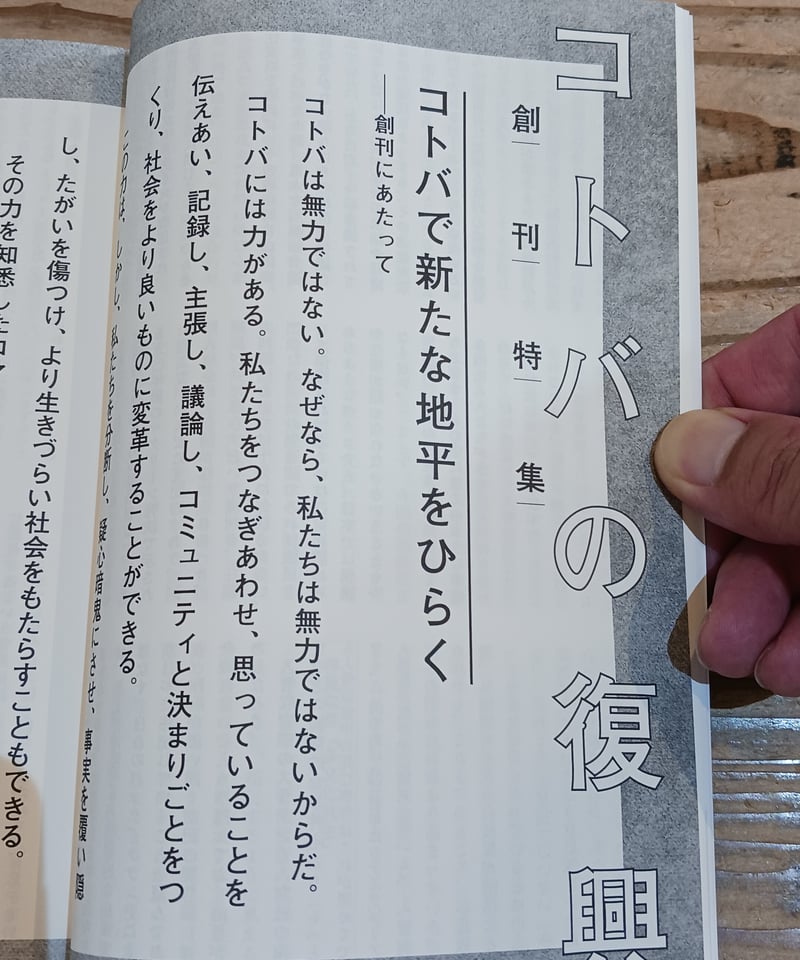 コトバの復興
創刊特集
コトバで新たな地平をひらく
──創刊にあたって
コトバは無力ではない。なぜなら、私たちは無力ではないからだ。
コトバには力がある。私たちをつなぎあわせ、思っていることを
伝えあい、記録し、主張し、議論し、コミュニティと決まりごとをつ
くり、社会をより良いものに変革することができる。
この力は、しかし、私たちを分断し、疑心暗鬼にさせ、事実を覆い隠
し、たがいを傷つけ、より生きづらい社会をもたらすこともできる。
その力を知悉した